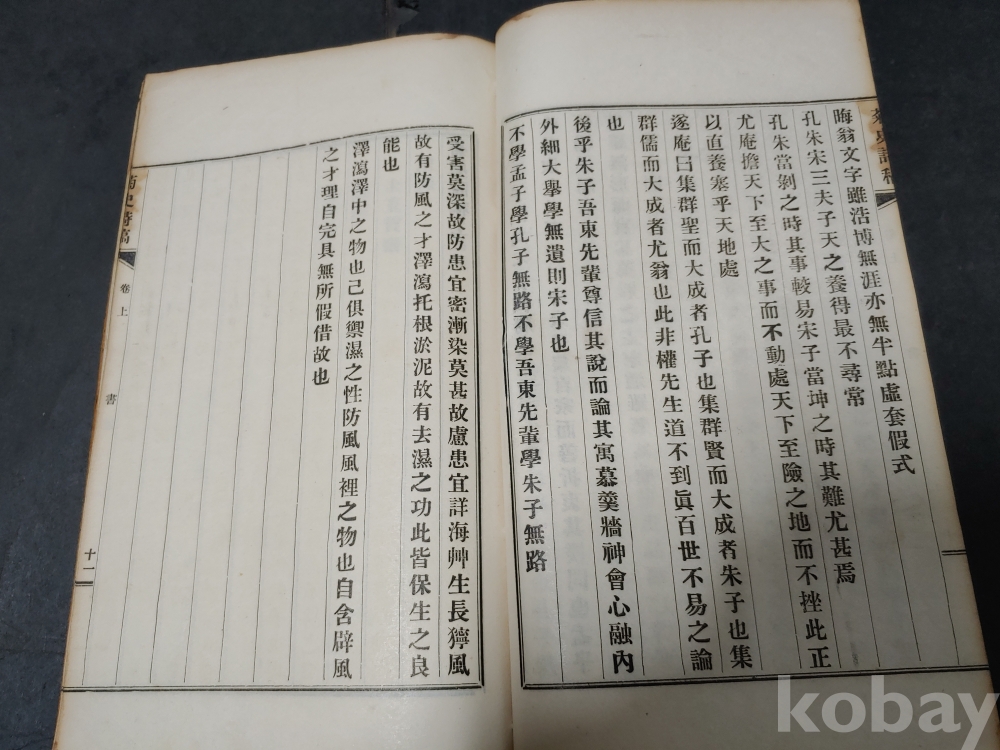 史詩稿
晦翁文字雖浩博無涯亦無半點虛套假式
孔朱宋三夫子天之養得最不尋常
孔朱當剝之時其事較易宋子當坤之時其難尤甚焉
尤庵擔天下至大之事而不動處天下至險之地而不挫此正
以直養塞乎天地處
遂庵曰集群聖而大成者孔子也集群賢而大成者朱子也集
群儒而大成者尤翁也此非權先生道不到眞百世不易之論
也
後乎朱子吾東先輩尊信其說而論其寓慕羹牆神會心融內
外細大擧學無遺則宋子也
不學孟子學孔子無路不學吾東先輩學朱子無路
受害莫深故防患宜密漸染莫甚故慮患宜詳海艸生長獰風
故有防風之才澤瀉托根淤泥故有去濕之功此皆保生之良
能也
澤瀉澤中之物也己俱禦濕之性防風風裡之物也自含辟風
之才理自完具無所假借故也
史詩稿
卷上
書
十一
kobay